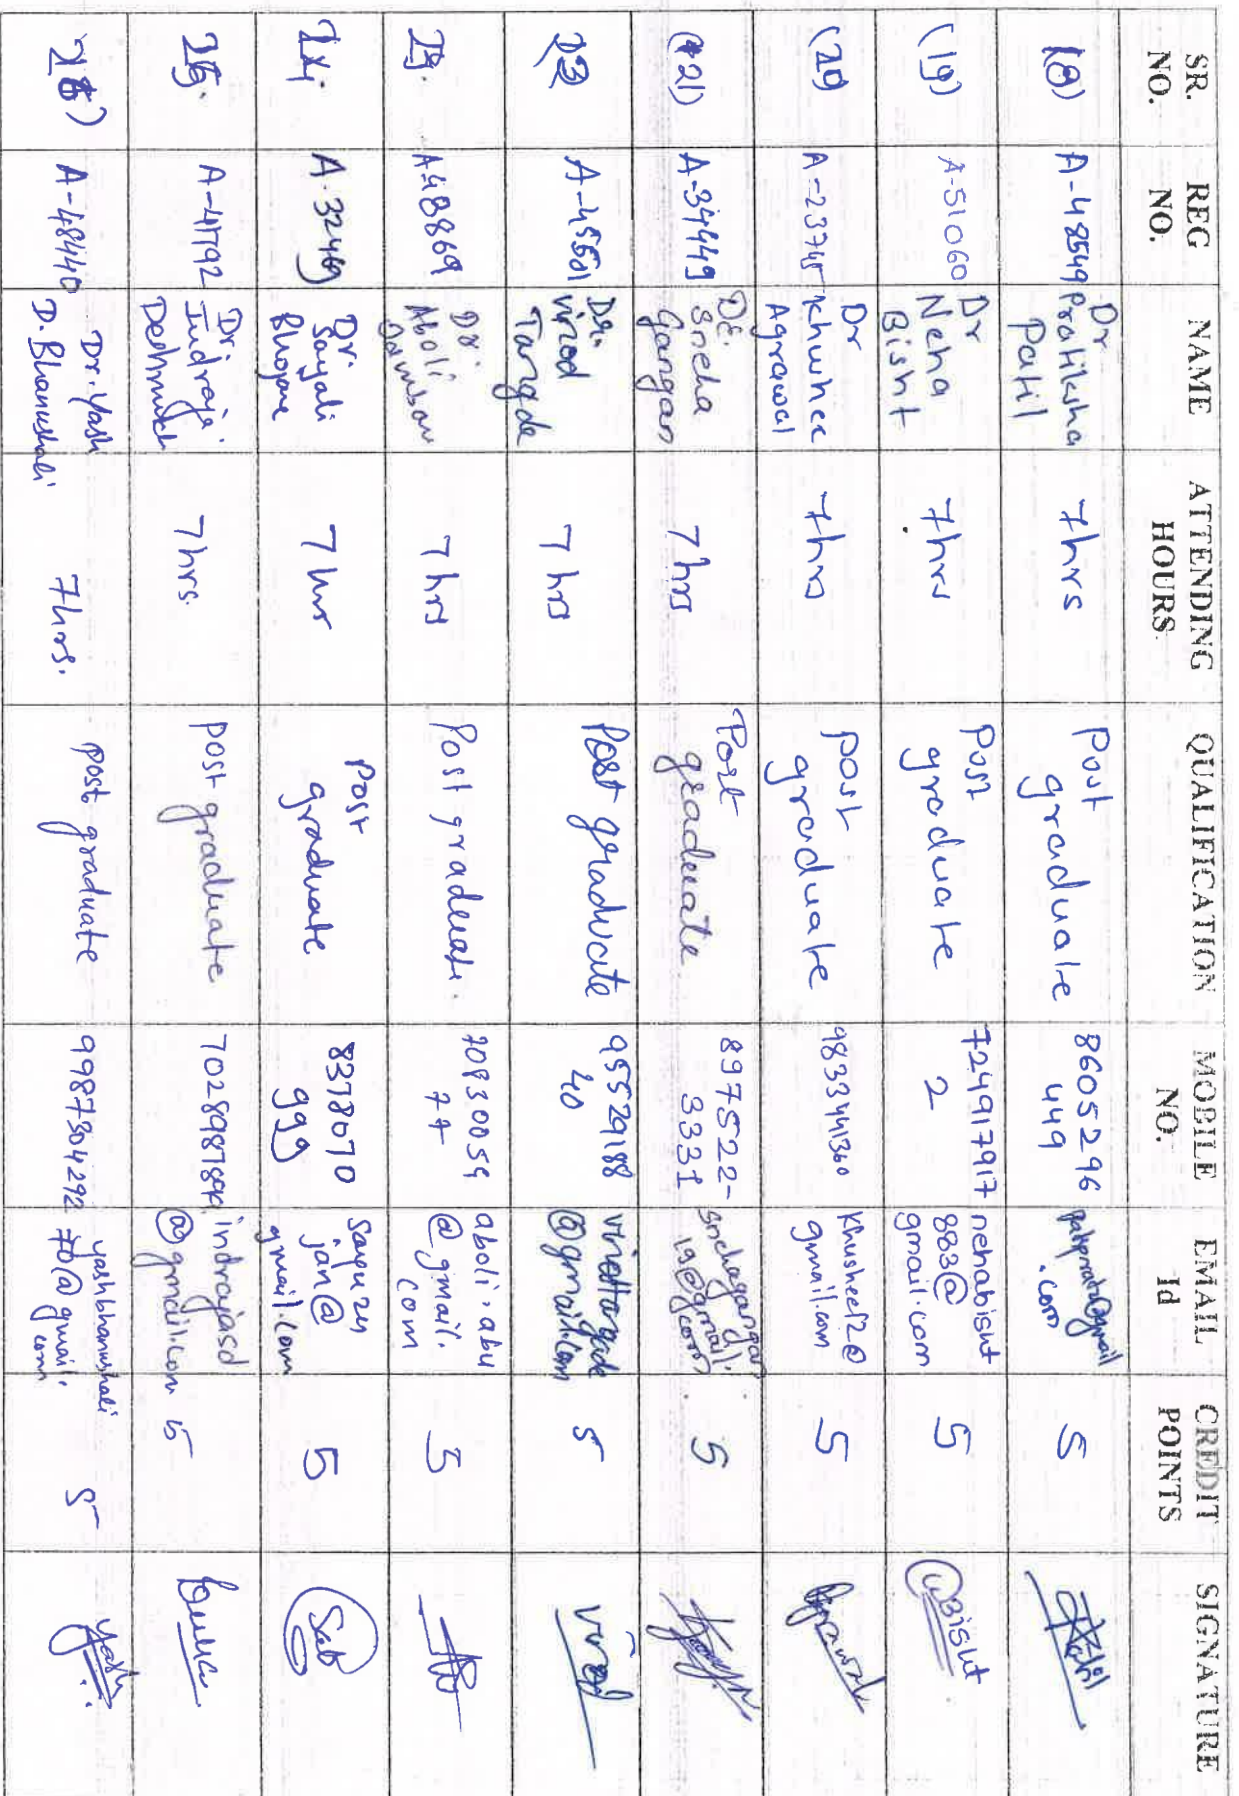 SR. NO.	REG NO.	NAME	ATTENDING HOURS	QUALIFICATION	MOBILE NO.	EMAIL Id	CREDIT POINTS	SIGNATURE
(18)	A-48549	Dr Pratiksha Patil	7hrs	Post graduate	8605296 449	.com	5	Patil
(19)	A-51060	Dr Neha Bisht	7hrs	Post graduate	724917917 2	nehabisht 883@ gmail.com	5	Bisht
(20)	A-23745	Dr Khushee Agrawal	7hrs	post graduate	9833441360	Khushee12@ gmail.com	5	Agrawal
(21)	A-34449	Dr. Sneha Gangan	7 hrs	Post graduate	897522- 3331	snehagangan 19@gmail. com	5
22	A-45501	Dr. Vinod Targde	7 hrs	Post graduate	95529188 40	@gmail.com	5
23.	A-48869	Dr. Aboli	7 hrs	Post graduate.	70830059 77	aboli.abu @gmail. com	5
24.	A-32469	Dr. Sayali Bhogave	7 hr	Post graduate	8378070 999	jan@ gmail.com	5
25.	A-41792	Dr. Indraja Deshmukh	7 hrs.	post graduate	7028987890	indrajasd @gmail.com	5
26)	A-48440	Dr. Yash D. Bhanushali	7hrs.	post graduate	9987304292	yashbhanushali 70@gmail. com	5	Yash